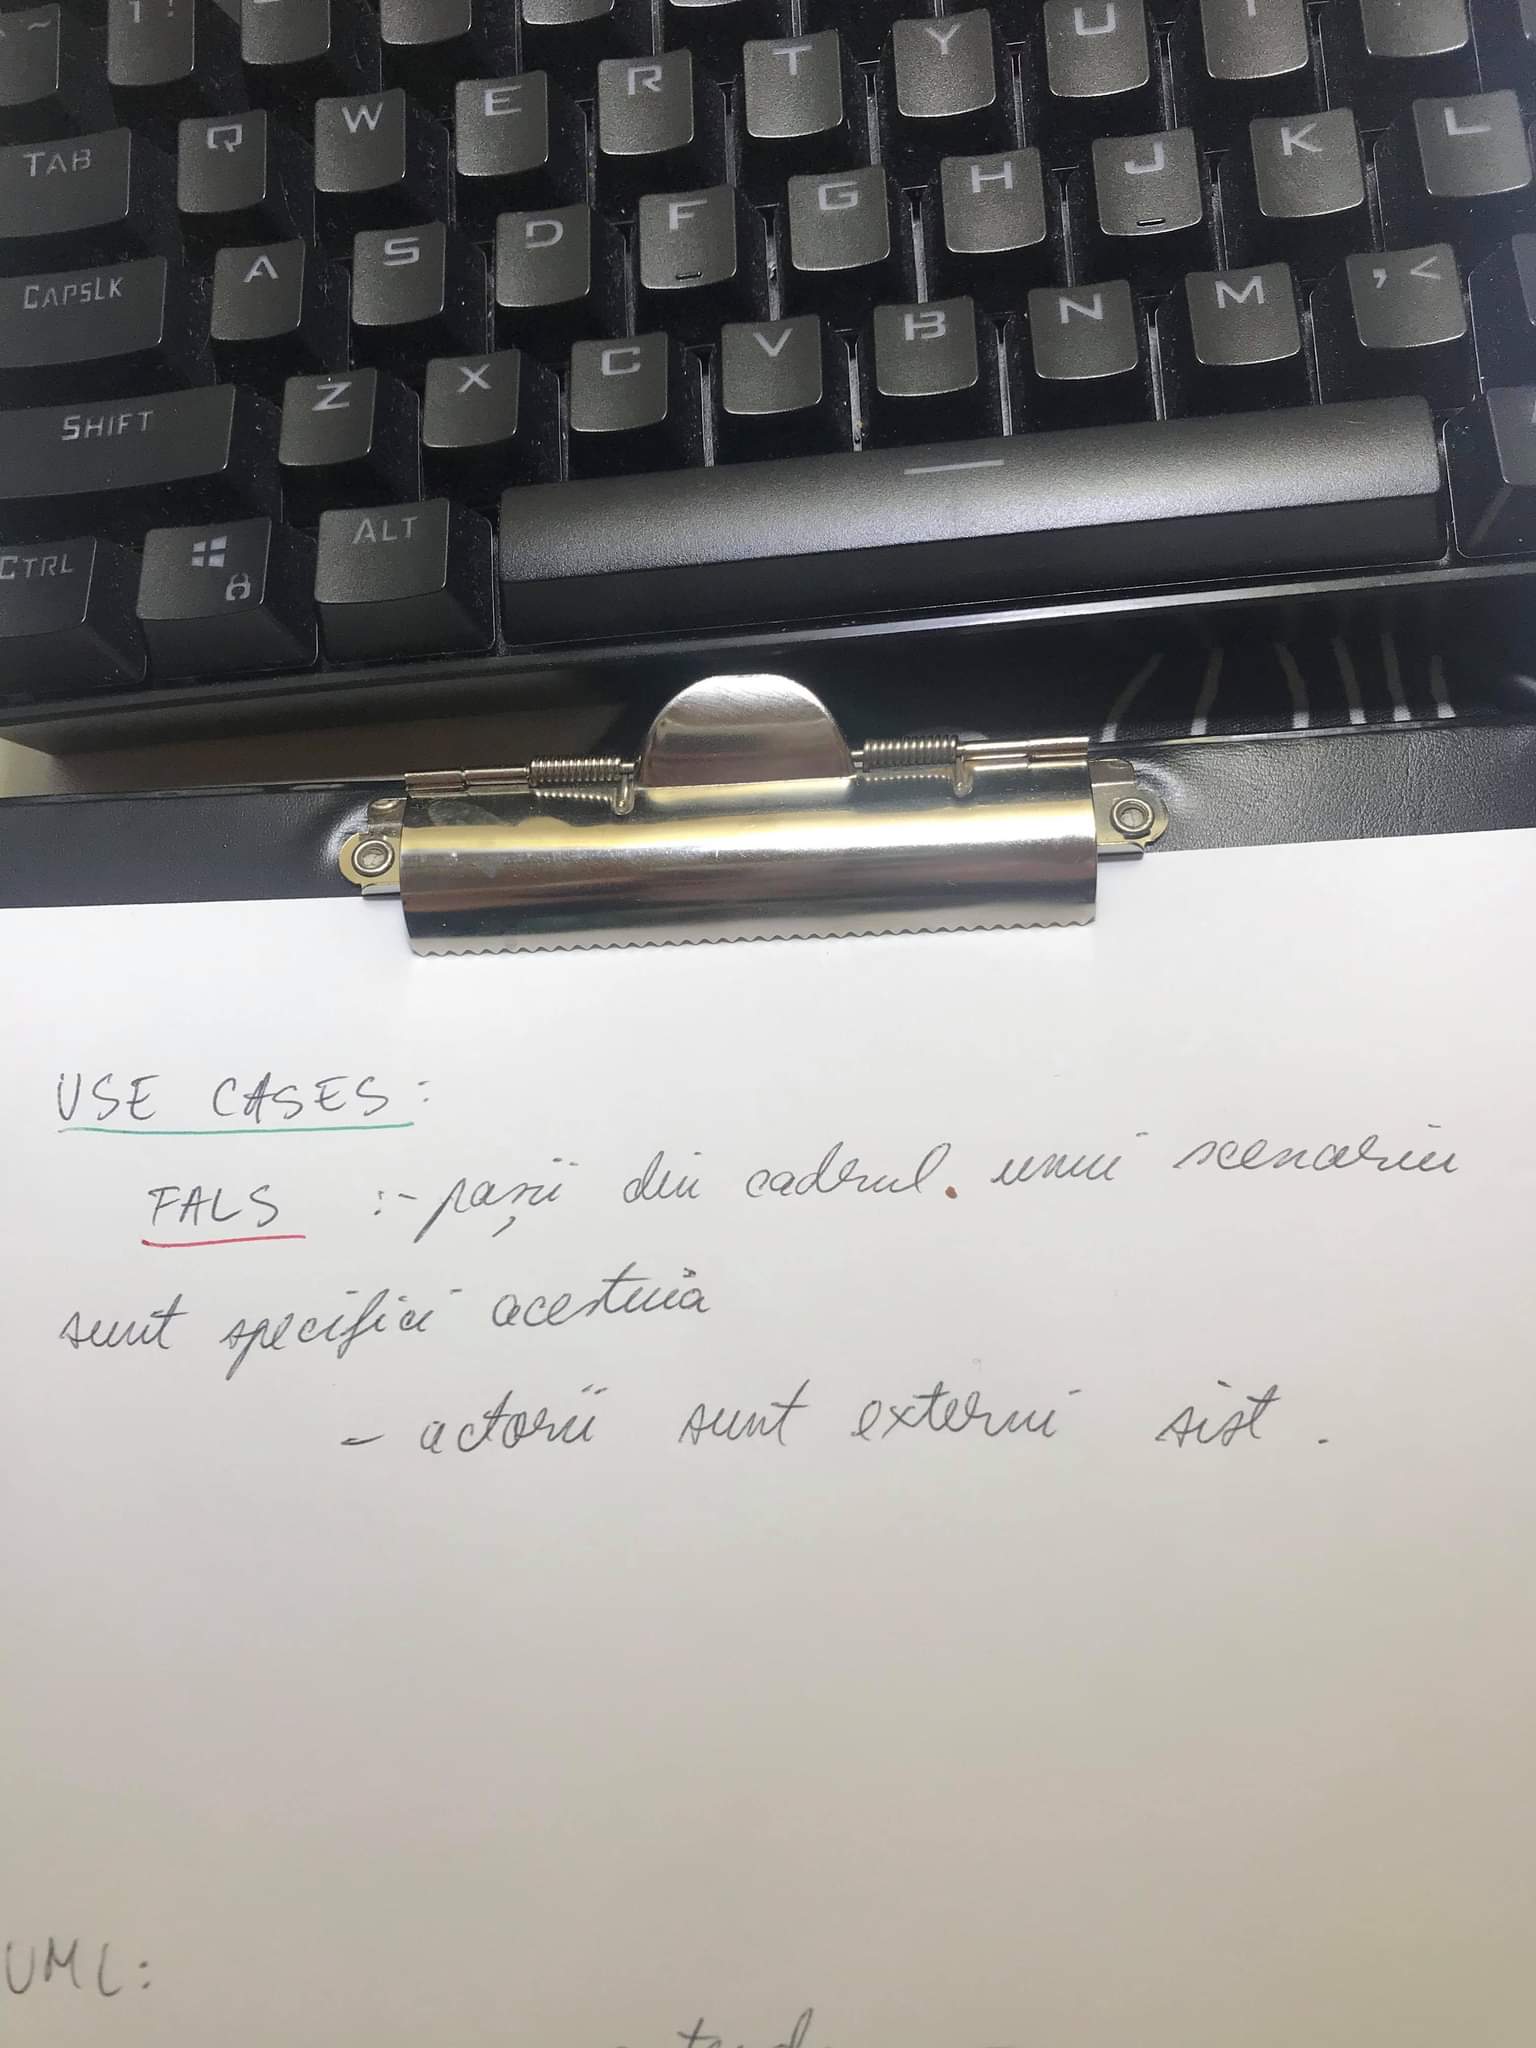 ~ 1!
TAB Q W E R T Y U I
CAPSLK A S D F G H J K L
SHIFT Z X C V B N M , <
CTRL ALT
USE CASES:
FALS :- pașii din cadrul. unui scenariu
sunt specifici acestuia
- actorii sunt externi sist.
UML: